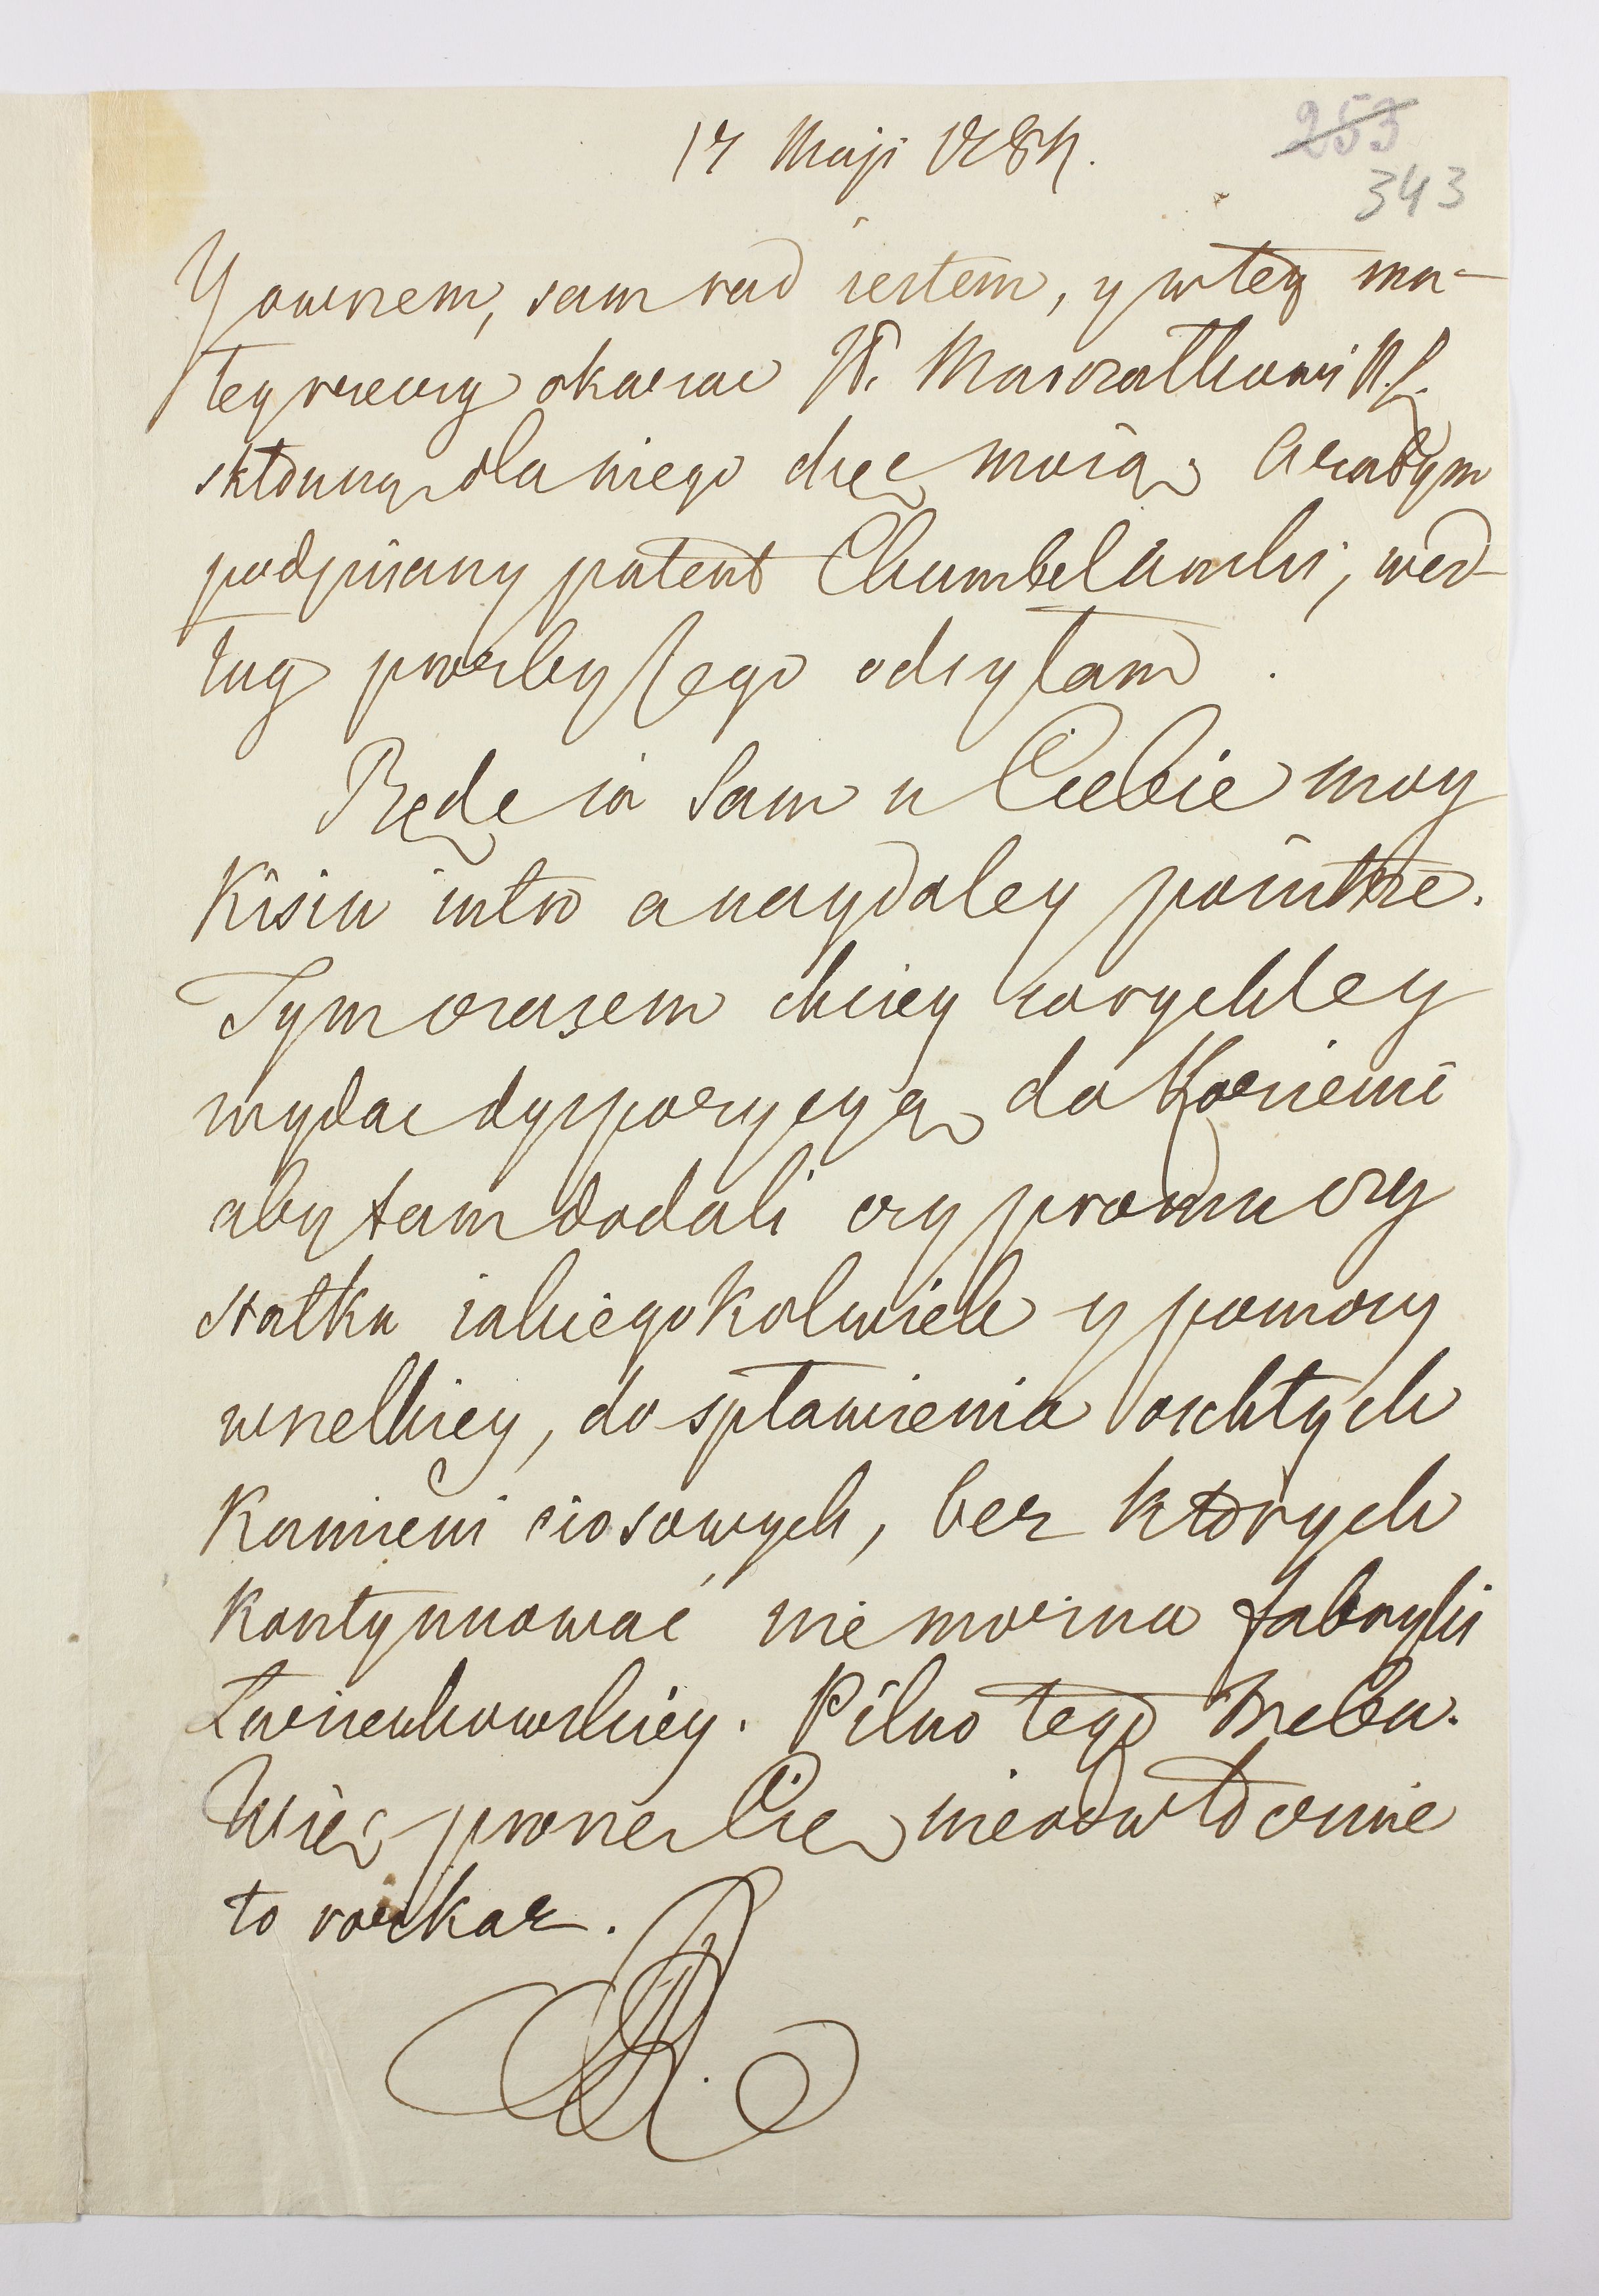 17 Maji 1784.
253
343
Y owszem, sam rad iestem, y w tey ma-
łey rzeczy okazać JP. Marszałkowi N. L.
skłonną dla niego chęć moią; A zatym
podpisany patent Chambelański, wed-
ług prozby Jego odsyłam.
Będę ia Sam u Ciebie moy
Kisiu iutro a naydaley poiutrze.
Tym czasem chciey co rychley
wydać dyspozycyą do Kozienic
aby tam dodali czy promu czy
statku iakiegokolwiek y pomocy
wszelkiey, do spławienia oschłych
Kamieni ciosowych, bez ktorych
kontynuować nie można fabryki
Łazienkowskiey. Pilno tego trzeba.
Więc proszę Cię nieodwłocznie
to rozkaz.
SAR.